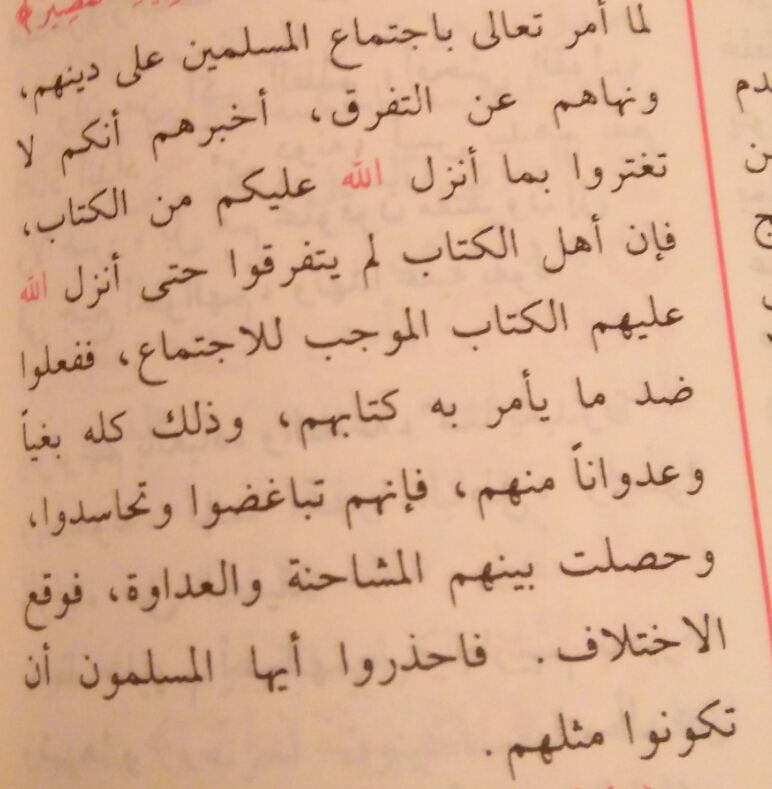 لما أمر تعالى باجتماع المسلمين على دينهم،
ونهاهم عن التفرق، أخبرهم أنكم لا
تغتروا بما أنزل الله عليكم من الكتاب،
فإن أهل الكتاب لم يتفرقوا حتى أنزل الله
عليهم الكتاب الموجب للاجتماع، ففعلوا
ضد ما يأمر به كتابهم، وذلك كله بغياً
وعدواناً منهم، فإنهم تباغضوا وتحاسدوا،
وحصلت بينهم المشاحنة والعداوة، فوقع
الاختلاف. فاحذروا أيها المسلمون أن
تكونوا مثلهم.